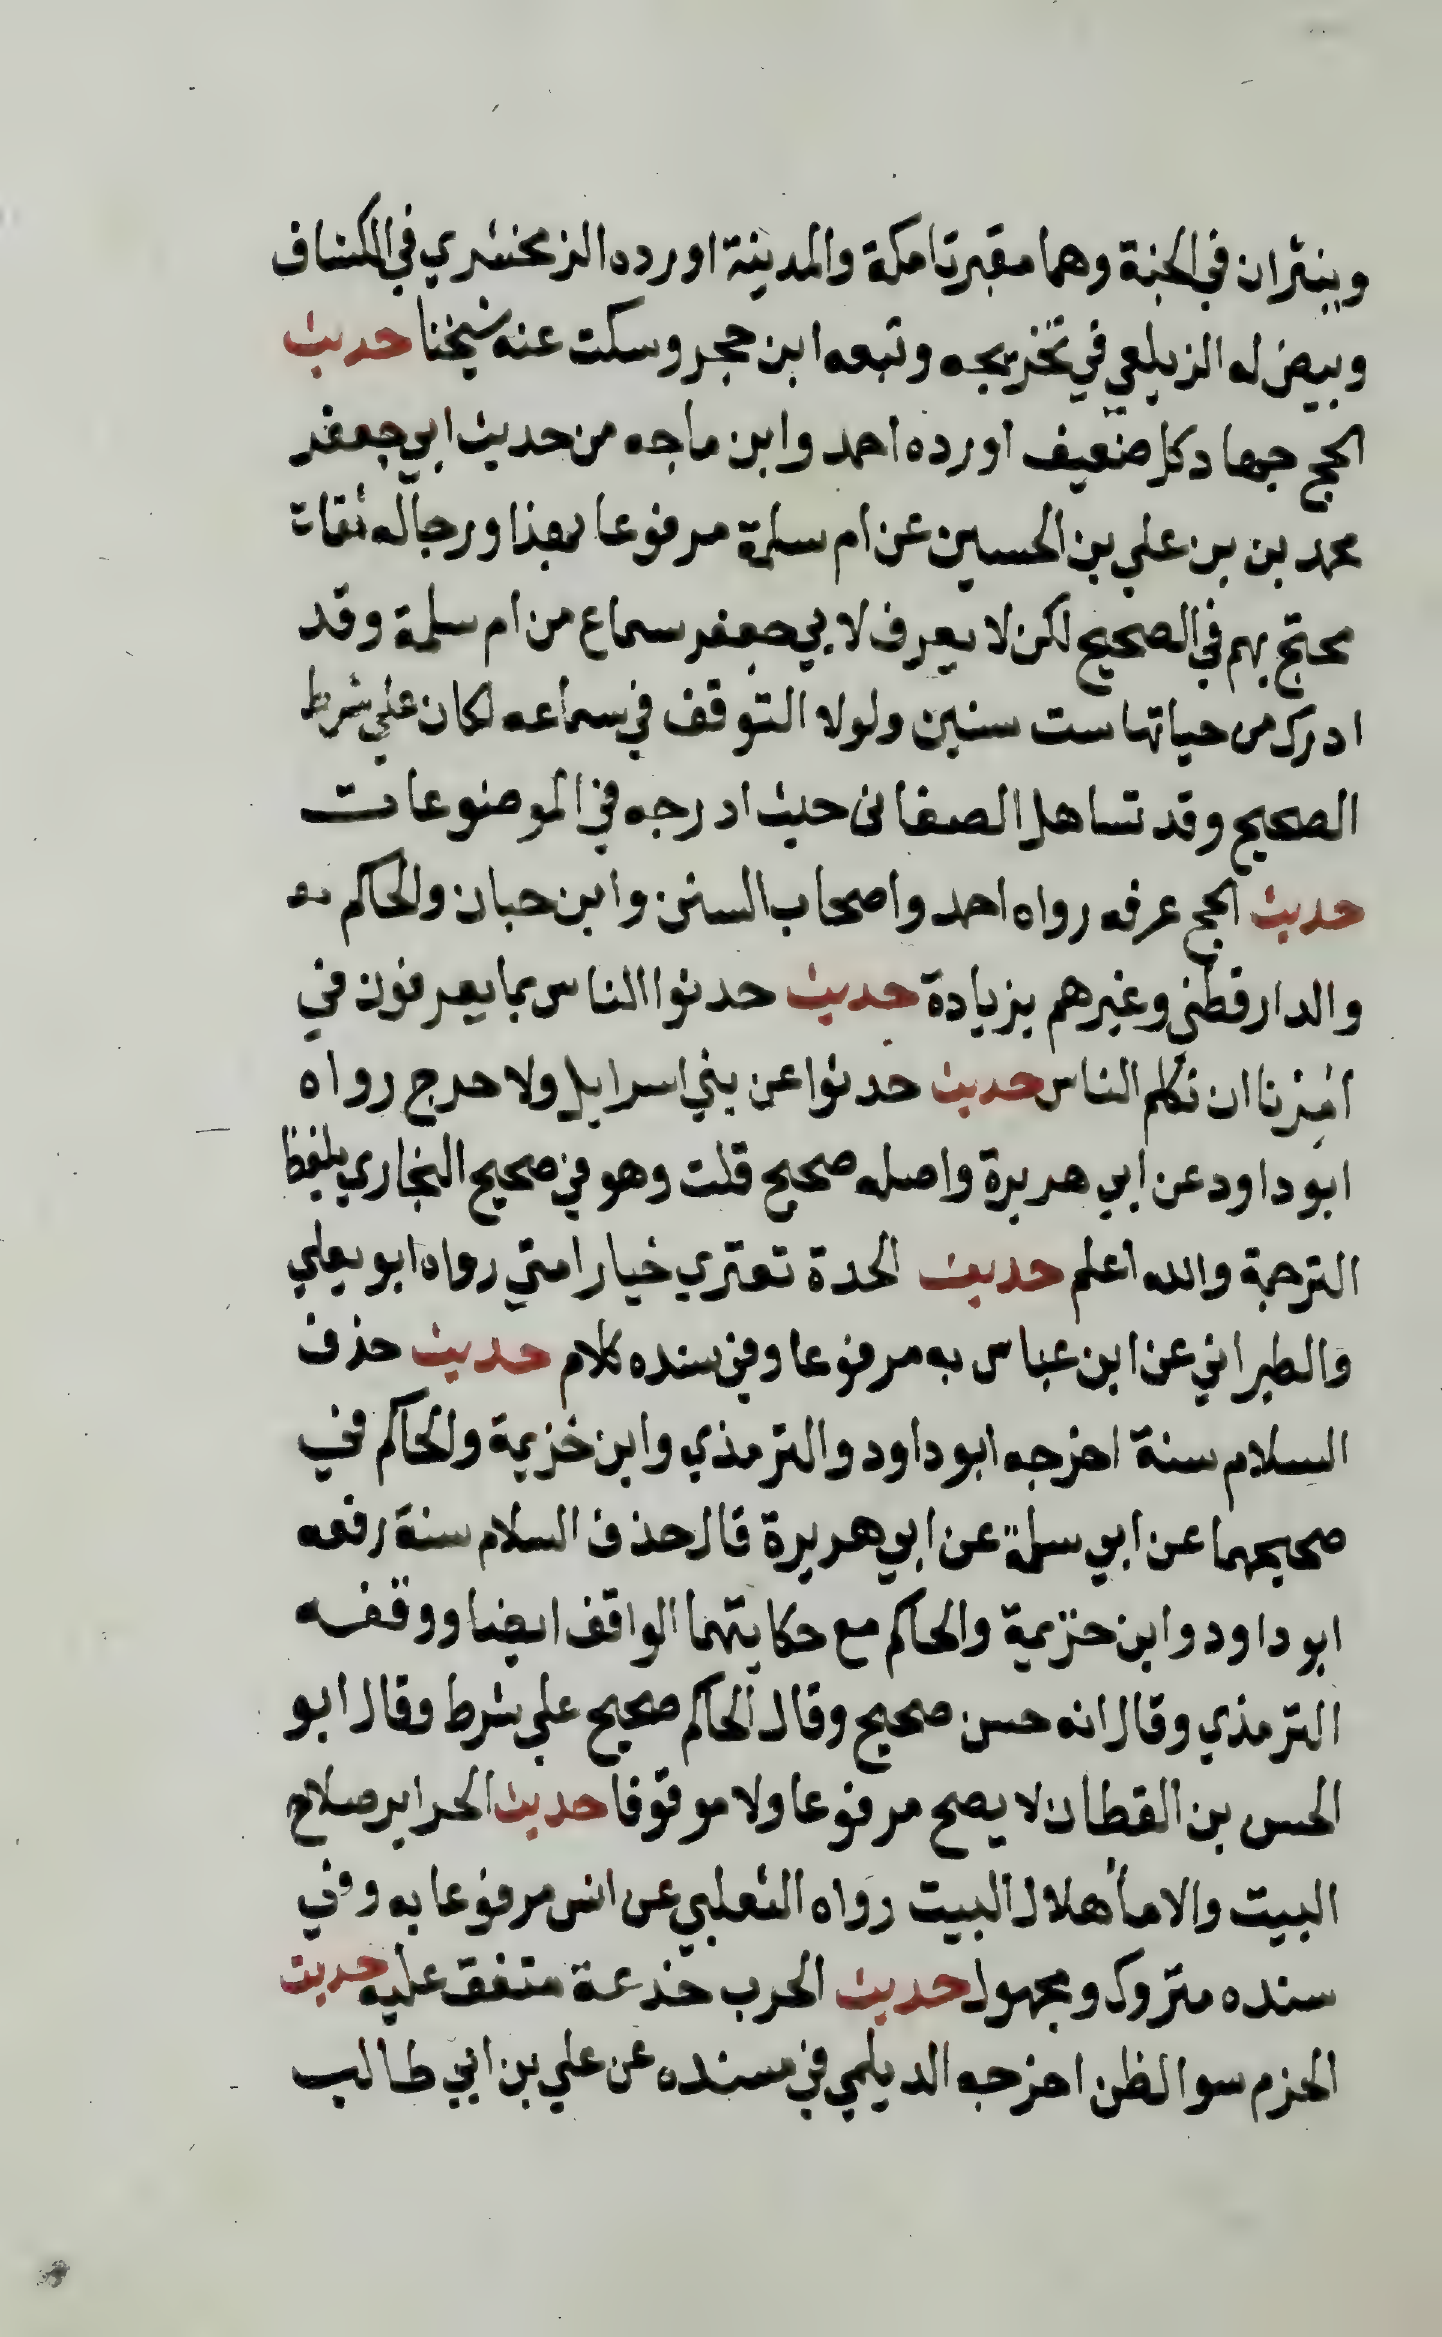 وينثران في الجنة وهما مقبرتا مكة والمدينة اورده الزمخشري في الكشاف
وبيض له الزيلعي في تخريجه وتبعه ابن حجر وسكت عنه شيخنا حديث
الحج جهاد كل ضعيف اورده احمد وابن ماجه من حديث ابي جعفر
محمد بن بن علي بن الحسين عن ام سلمة مرفوعا بهذا ورجاله ثقات
محتج بهم في الصحيح لكن لا يعرف لابي جعفر سماع من ام سلمة وقد
ادرك من حياتها ست سنين ولولا التوقف في سماعه لكان علي شرط
الصحيح وقد تساهل الصغانى حيث ادرجه في الموضوعات
حديث الحج عرفه رواه احمد واصحاب السنن وابن حبان والحاكم
والدارقطني وغيرهم بزيادة حديث حدثوا الناس بما يعرفون في
امرنا ان نكلم الناس حديث حدثوا عن بني اسرايل ولا حرج رواه
ابو داود عن ابي هريرة واصله صحيح قلت وهو في صحيح البخاري بلفظ
الترجمة والله اعلم حديث الحدة تعتري خيار امتي رواه ابو يعلي
والطبراني عن ابن عباس به مرفوعا وفي سنده كلام حديث حذف
السلام سنة اخرجه ابو داود والترمذي وابن خزيمة والحاكم في
صحيحهما عن ابي سلمة عن ابي هريرة قال حذف السلام سنة رفعه
ابو داود وابن خزيمة والحاكم مع حكايتهما الواقف ايضا ووقفه
الترمذي وقال انه حسن صحيح وقال الحاكم صحيح علي شرط وقال ابو
الحسن بن القطان لا يصح مرفوعا ولا موقوفا حديث الحراير صلاح
البيت والاما هلاك البيت رواه الثعلبي عن انس مرفوعا به وفي
سنده متروك ومجهول حديث الحرب خدعة متفق عليه حديث
الحزم سوا لظن اخرجه الديلمي في مسنده عن علي بن ابي طالب